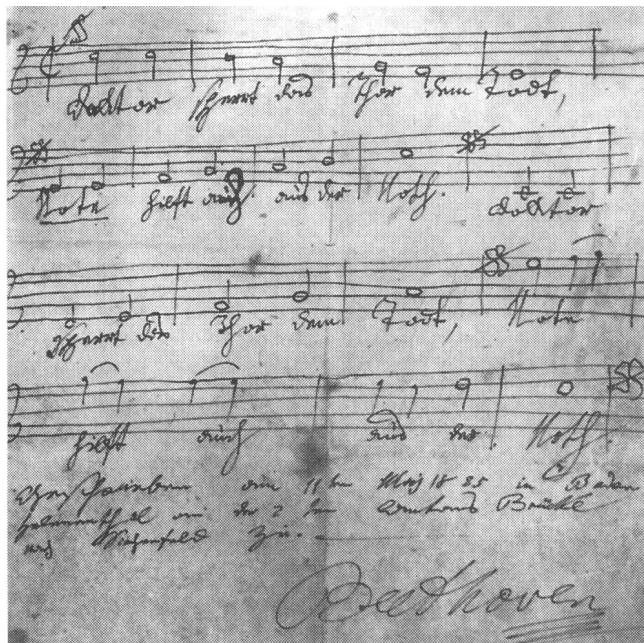 Doktor sperrt das Thor dem Todt,
Note hilft auch aus der Noth. Doktor
sperrt das Thor dem Todt, Note
hilft auch aus der Noth.
Geschrieben am 11ten May 1825 in Baden
Helenenthal an der 2ten Antons Brücke
nach Siechenfeld zu. –
Beethoven